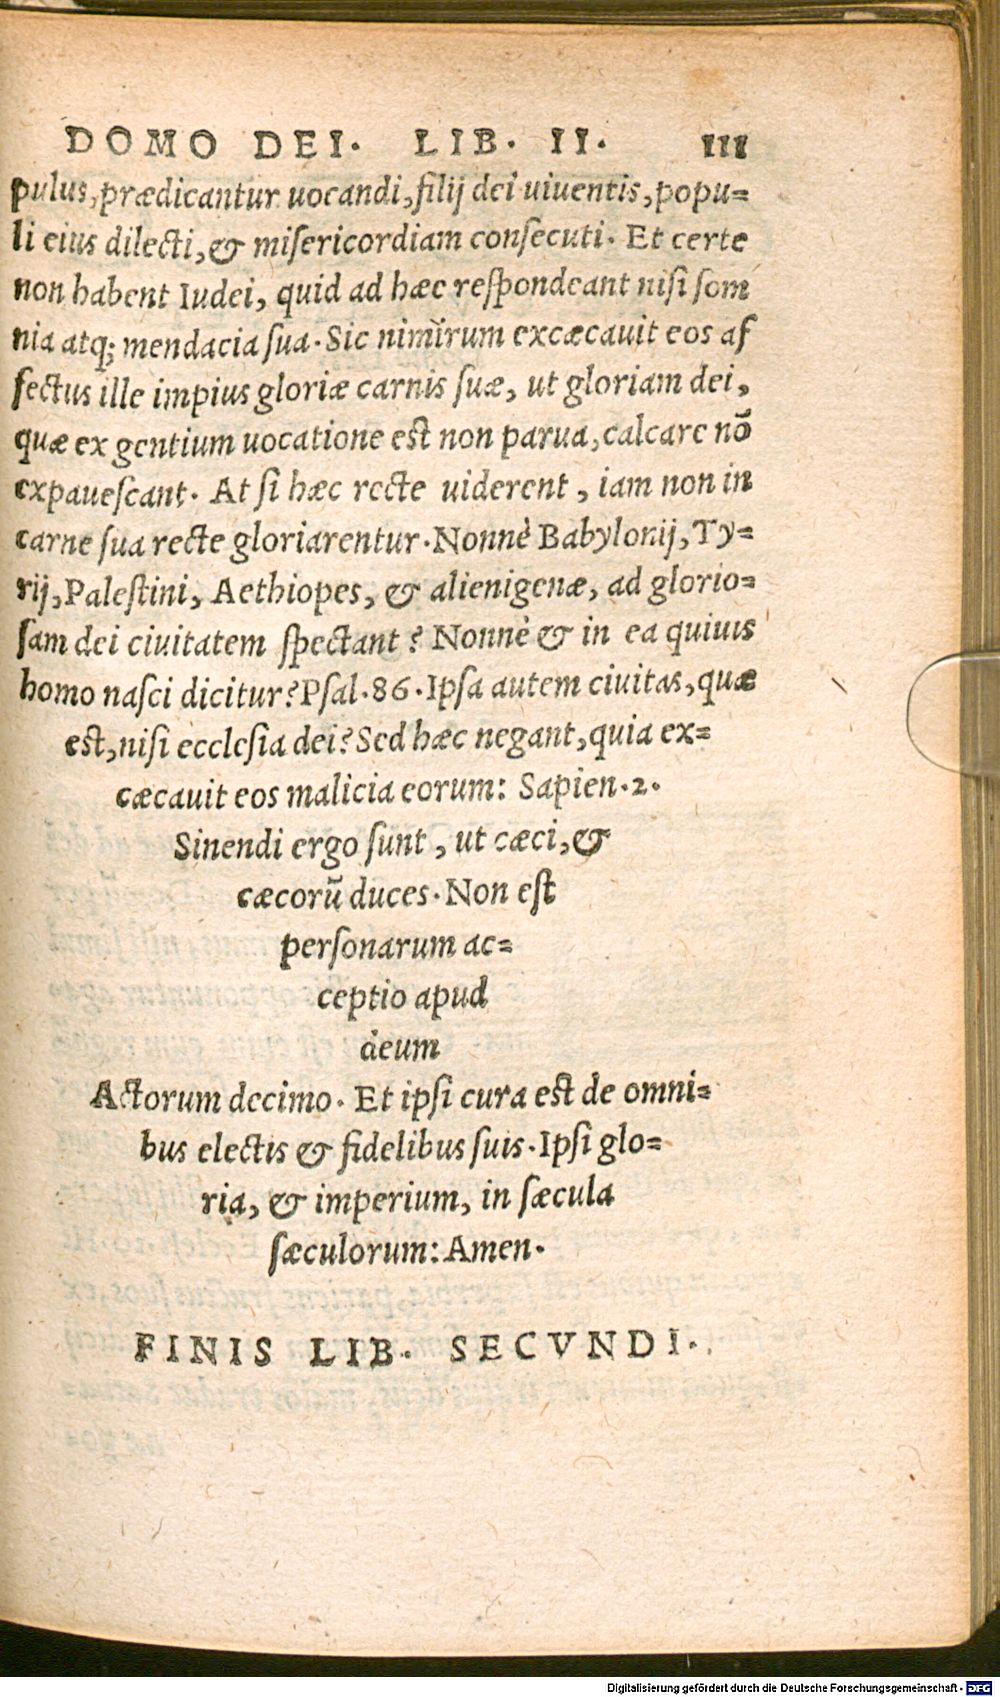 DOMO DEI. LIB. II. III
pulus, prædicantur uocandi, filij dei uiuentis, popu=
li eius dilecti, & misericordiam consecuti. Et certe
non habent Iudei, quid ad hæc respondeant nisi som
nia atq; mendacia sua. Sic nimirum excæcauit eos af
fectus ille impius gloriæ carnis suæ, ut gloriam dei,
quæ ex gentium uocatione est non parua, calcare nō
expauescant. At si hæc recte uiderent, iam non in
carne sua recte gloriarentur. Nonnè Babylonij, Ty=
rij, Palestini, Aethiopes, & alienigenæ, ad glorio=
sam dei ciuitatem spectant? Nonnè & in ea quiuis
homo nasci dicitur? Psal. 86. Ipsa autem ciuitas, quæ
est, nisi ecclesia dei? Sed hæc negant, quia ex=
cæcauit eos malicia eorum: Sapien. 2.
Sinendi ergo sunt, ut cæci, &
cæcorū duces. Non est
personarum ac=
ceptio apud
deum
Actorum decimo. Et ipsi cura est de omni=
bus electis & fidelibus suis. Ipsi glo=
ria, & imperium, in sæcula
sæculorum: Amen.
FINIS LIB. SECVNDI.
Digitalisierung gefördert durch die Deutsche Forschungsgemeinschaft - DFG